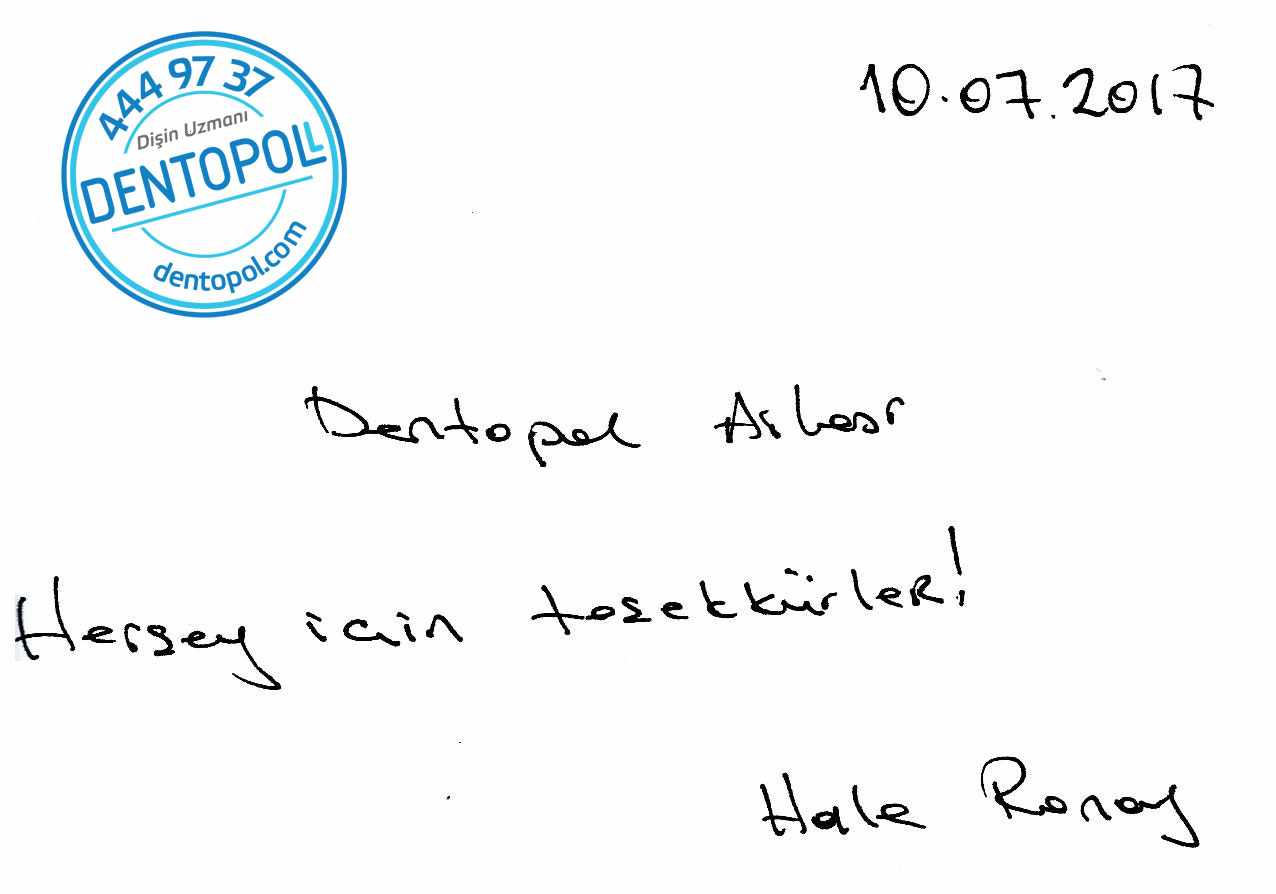 444 97 37
Dişin Uzmanı
DENTOPOLL
dentopol.com
10.07.2017
Dentopol Ailesi
Herşey için teşekkürler!
Hale Ronay